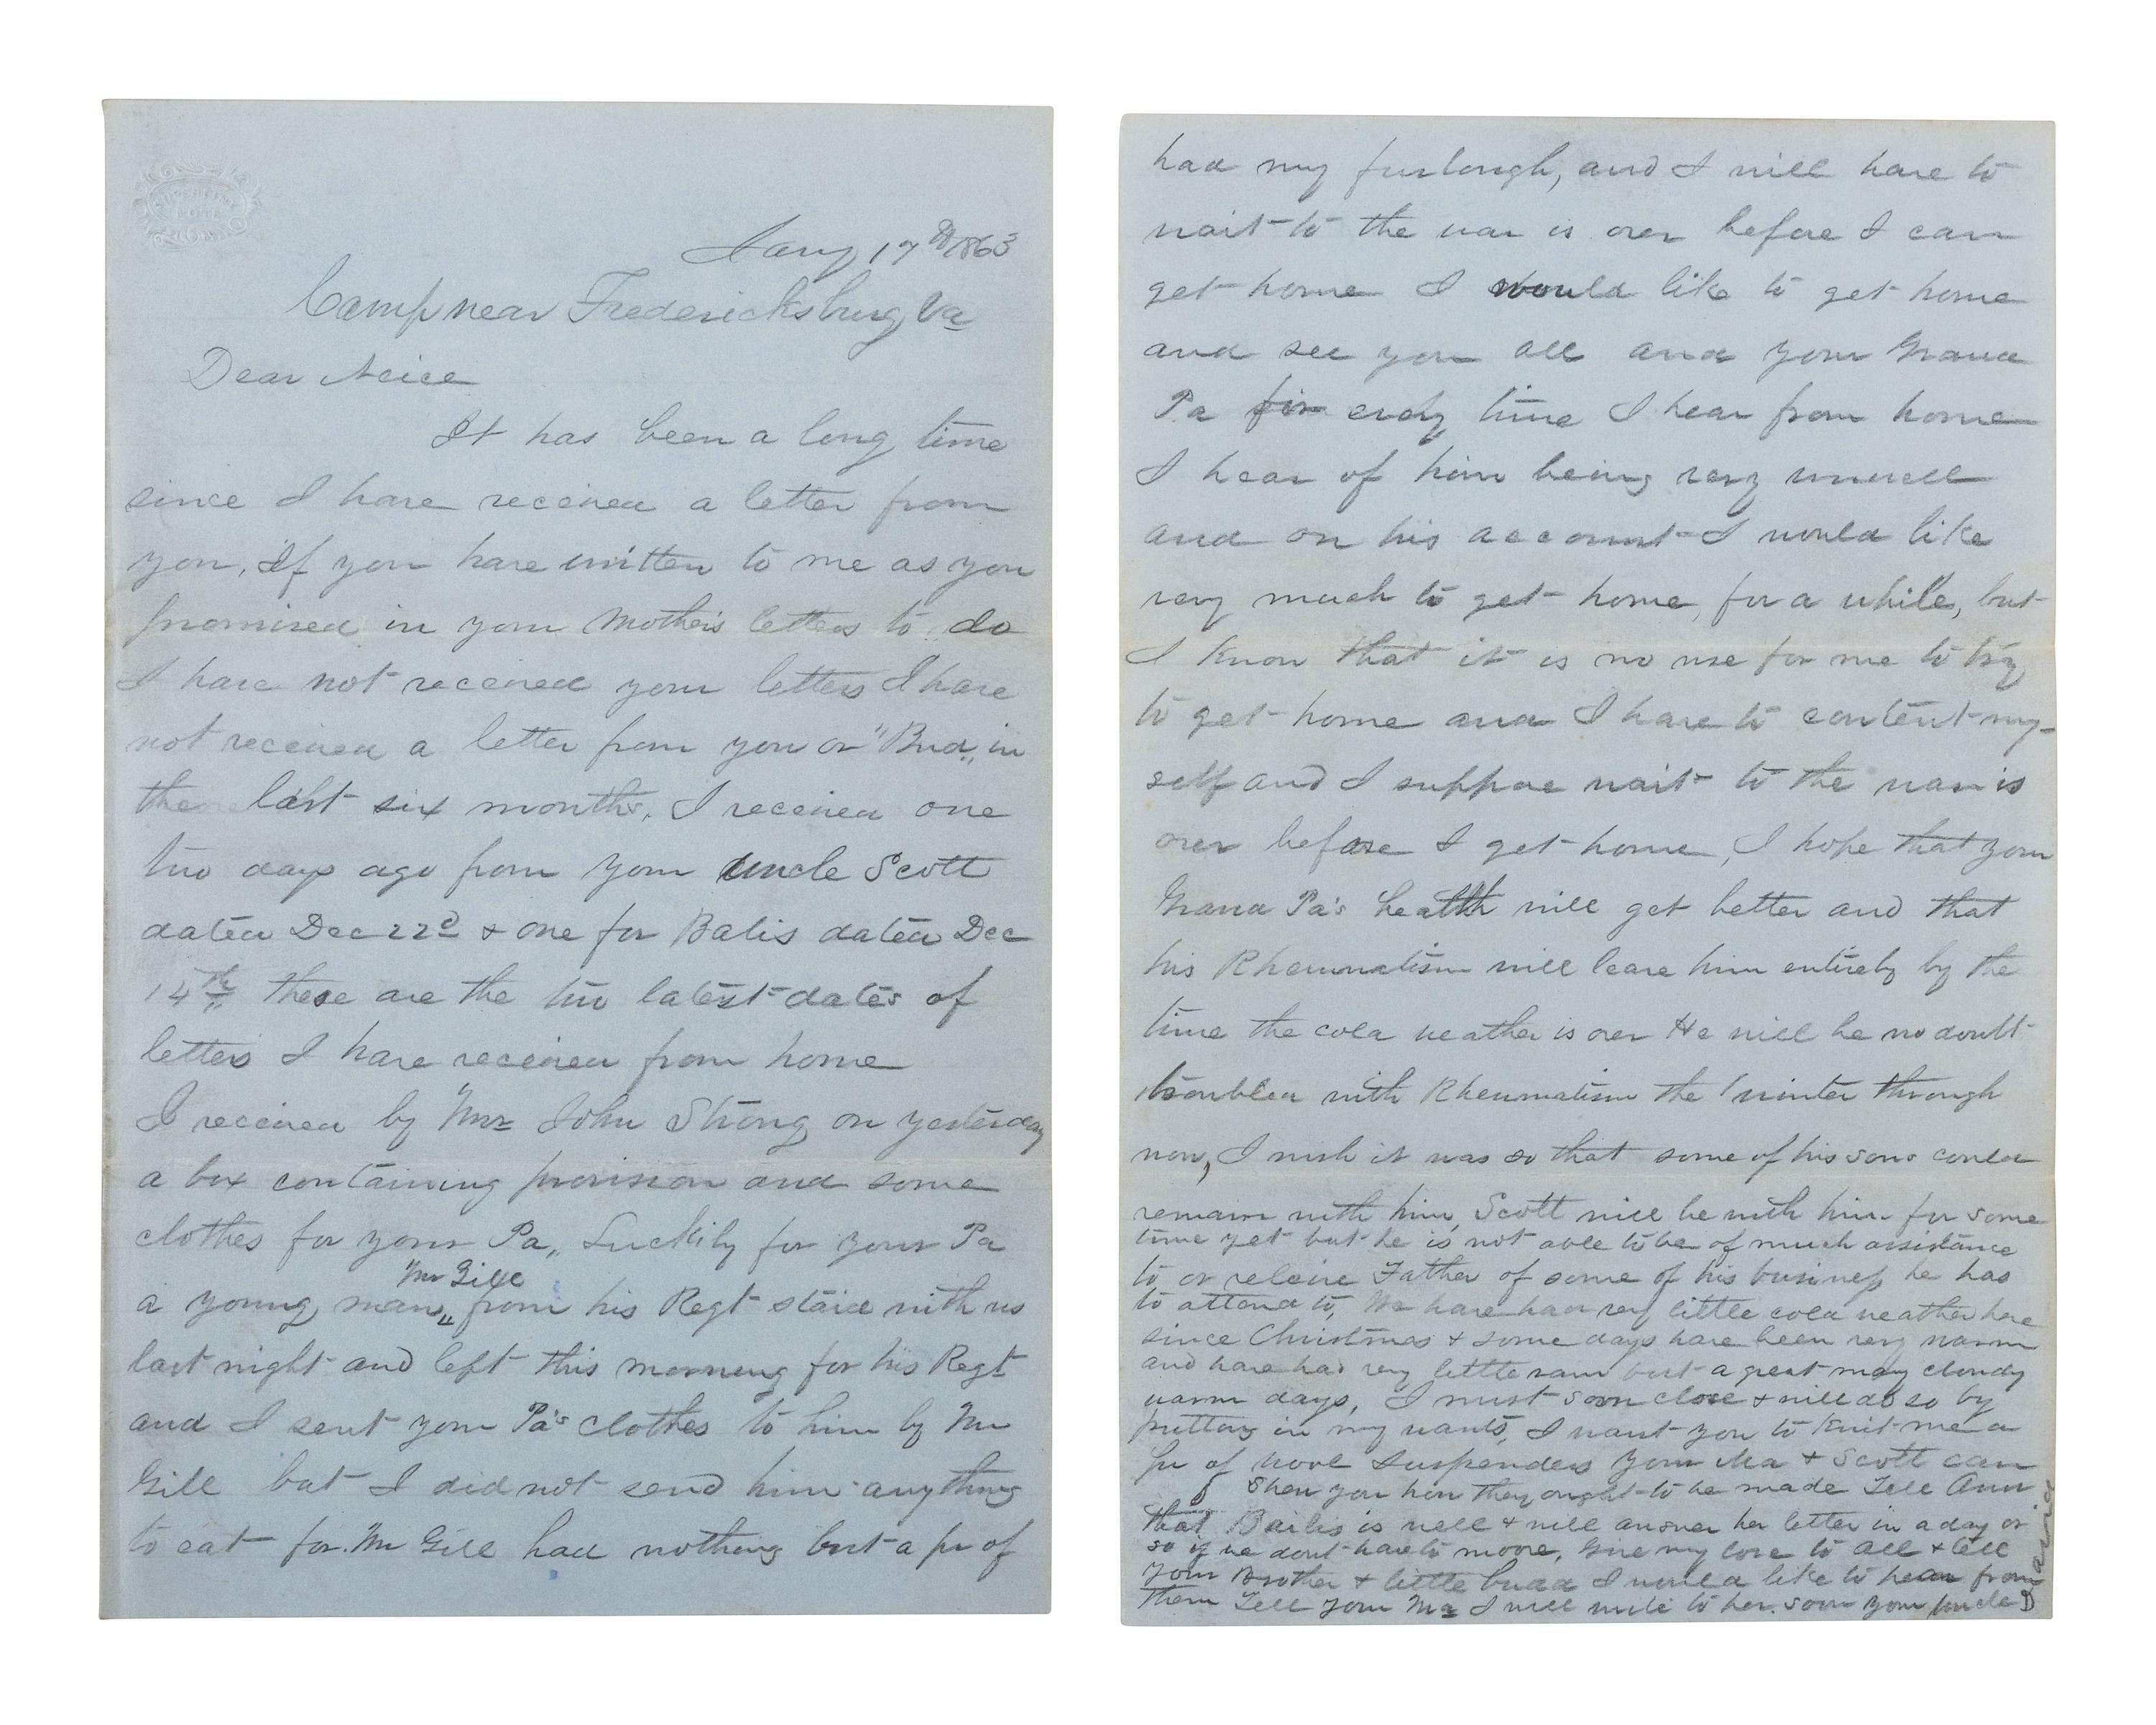 SUPERFINE
NOTE
Jany 17th 1863
Camp near Fredericksburg Va
Dear Neice
It has been a long time
since I have received a letter from
you, If you have written to me as you
promised in your Mother's letters to do
I have not received your letters I have
not received a letter from you or "Bud" in
the last six months, I received one
two days ago from your Uncle Scott
dated Dec 22d & one for Balis dated Dec
14th these are the two latest dates of
letters I have received from home
I received by Mr John Strong on yesterday
a box containing provision and some
clothes for your Pa, Luckily for your Pa
Mr Gill
a young man,, from his Regt staid with us
last night and left this morning for his Regt
and I sent your Pa's clothes to him by Mr
Gill but I did not send him anything
to eat for Mr Gill had nothing but a pr of
had my furlough, and I will have to
wait to the war is over before I can
get home I would like to get home
and see you all and your Grand
Pa for evry time I hear from home
I hear of him being very unwell
and on his account I would like
very much to get home, for a while, but
I know that it is no use for me to try
to get home and I have to content my-
self and I suppose wait to the war is
over before I get home, I hope that your
Grand Pa's health will get better and that
his Rheumatism will leave him entirely by the
time the cold weather is over He will be no doubt
troubled with Rheumatism the winter through
now, I wish it was so that some of his sons could
remain with him, Scott will be with him for some
time yet but he is not able to be of much assistance
to or releive Father of some of his business he has
to attend to, We have had very little cold weather here
since Christmas & some days have been very warm
and have had very little rain but a great many cloudy
warm days, I must soon close & will do so by
putting in my wants, I want you to knit me a
pr of wool suspenders your Ma & Scott can
Shew you how they ought to be made Tell Ann
that Bailis is well & will answer her letter in a day or
so if we dont have to moove, Give my love to all & tell
your Brother & little budd I would like to hear from
them Tell your Ma I will write to her soon your Uncle
David